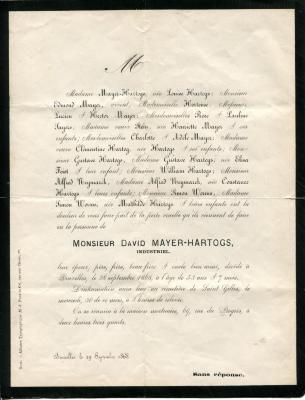 M
Madame Mayer-Hartogs, née Louise Hartogs; Monsieur
Edouard Mayer, Mademoiselle Hortense
Lucien & Hector Mayer; Mesdemoiselles Rose & Pauline
Mayer; Madame veuve née Henriette Mayer &
ses enfants; Mesdemoiselles Charlotte & Adèle Mayer; Madame
veuve Clémentine Hartog, née Hartogs & ses enfants;
Monsieur Gustave Hartogs, Madame Gustave Hartogs, née
& leur enfant; Monsieur William Hartogs; Monsieur
Alfred Weynants, Madame Alfred Weynants, née Constance
Hartogs & leurs enfants; Monsieur Simon Worms, Madame
Simon Worms, née Mathilde Hartogs & leurs enfants ont la
douleur de vous faire part de la perte cruelle qu'ils viennent de faire
en la personne de
MONSIEUR DAVID MAYER-HARTOGS,
INDUSTRIEL,
leur époux, père, frère, beau-frère & oncle bien-aimé, décédé à
Bruxelles, le 28 septembre 1888, à l'âge de 53 ans & 7 mois.
L'inhumation aura lieu au cimetière de Saint-Gilles, le
mercredi, 30 de ce mois, à
On se réunira à la maison mortuaire, 69, rue du Progrès, à
deux heures trois quarts.
Bruxelles, le 29 Septembre
Sans réponse.